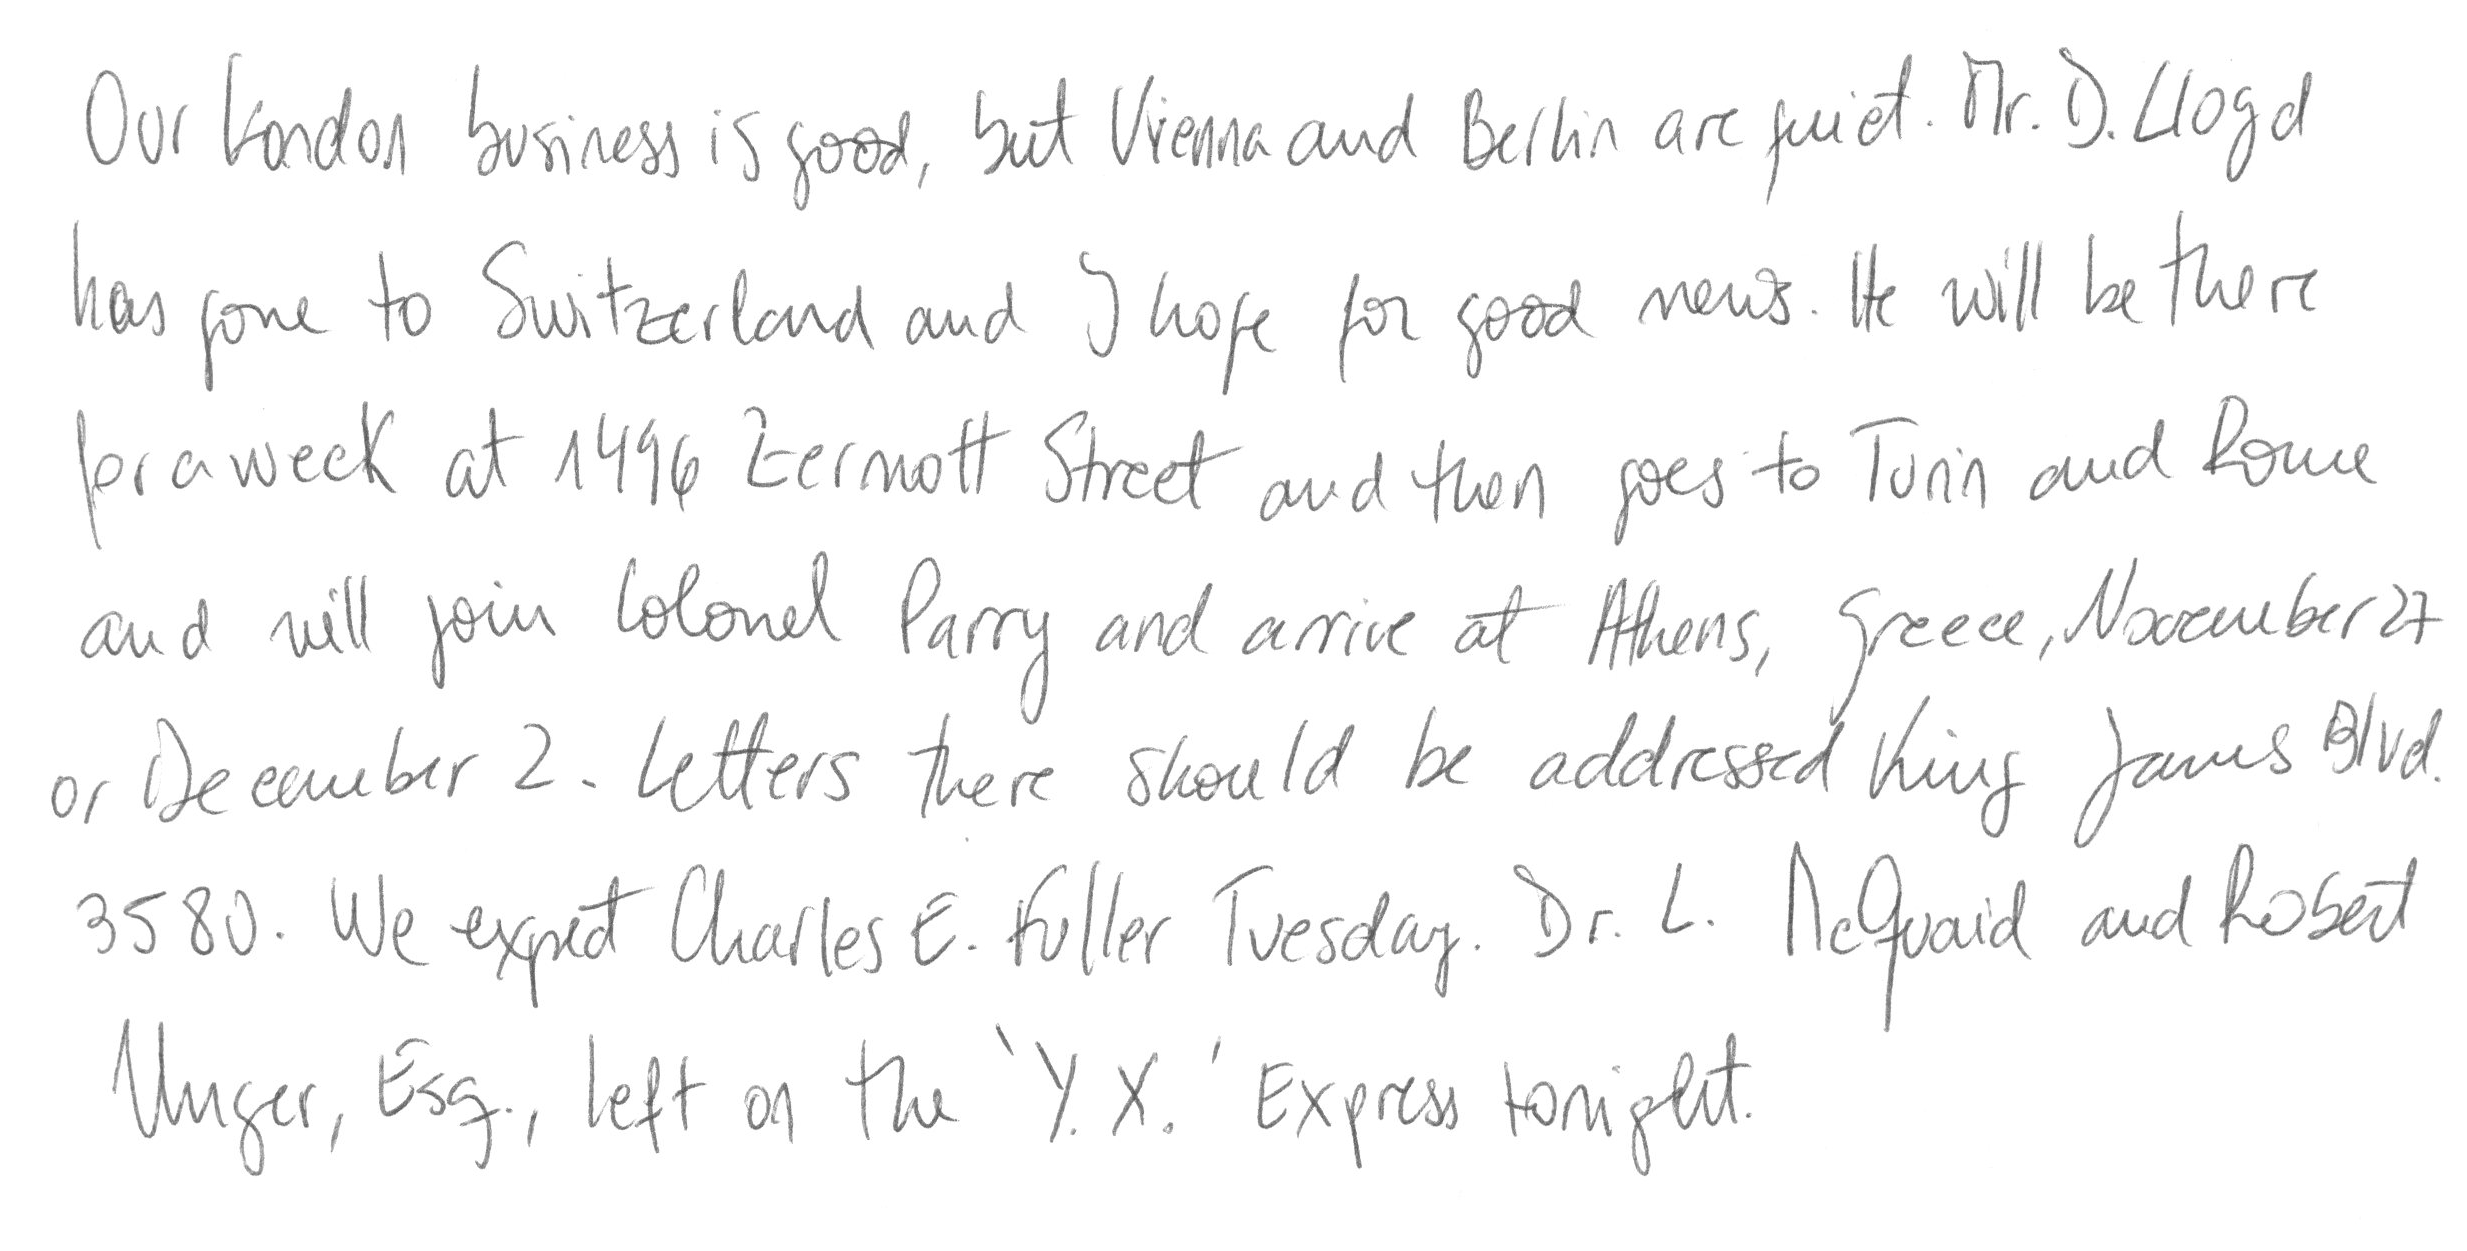 Our London business is good, but Vienna and Berlin are quiet. Mr. D. Lloyd
has gone to Switzerland and I hope for good news. He will be there
for a week at 1496 Zermott Street and then goes to Turin and Rome
and will join Colonel Parry and arrive at Athens, Greece, November 27
or December 2. Letters there should be addressed King James Blvd.
3580. We expect Charles E. Fuller Tuesday. Dr. L. McQuaid and Robert
Unger, Esq., left on the 'Y. X.' Express tonight.